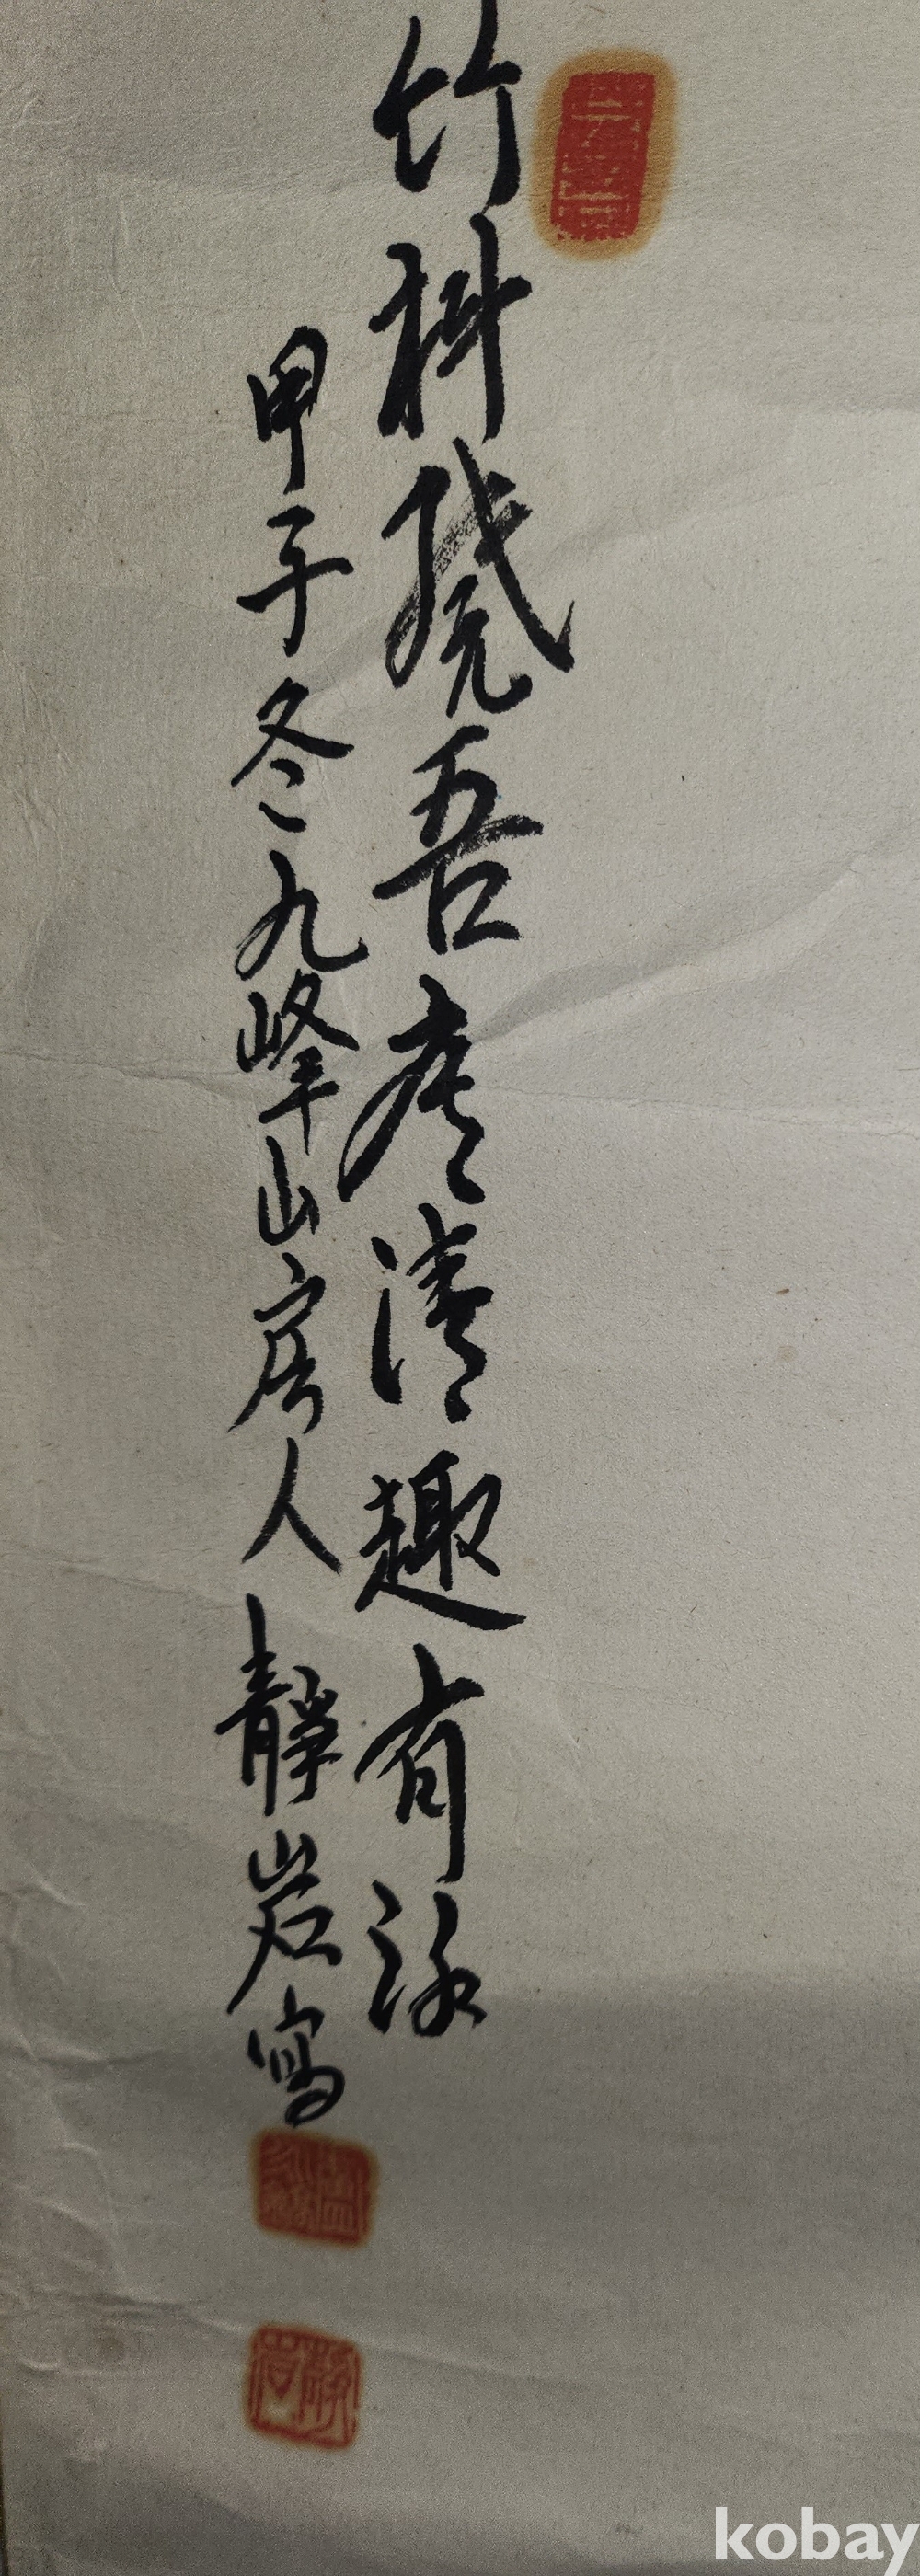 竹斜繞吾廬清趣有詠
甲子冬九峰山房人靜岩寫
kobay